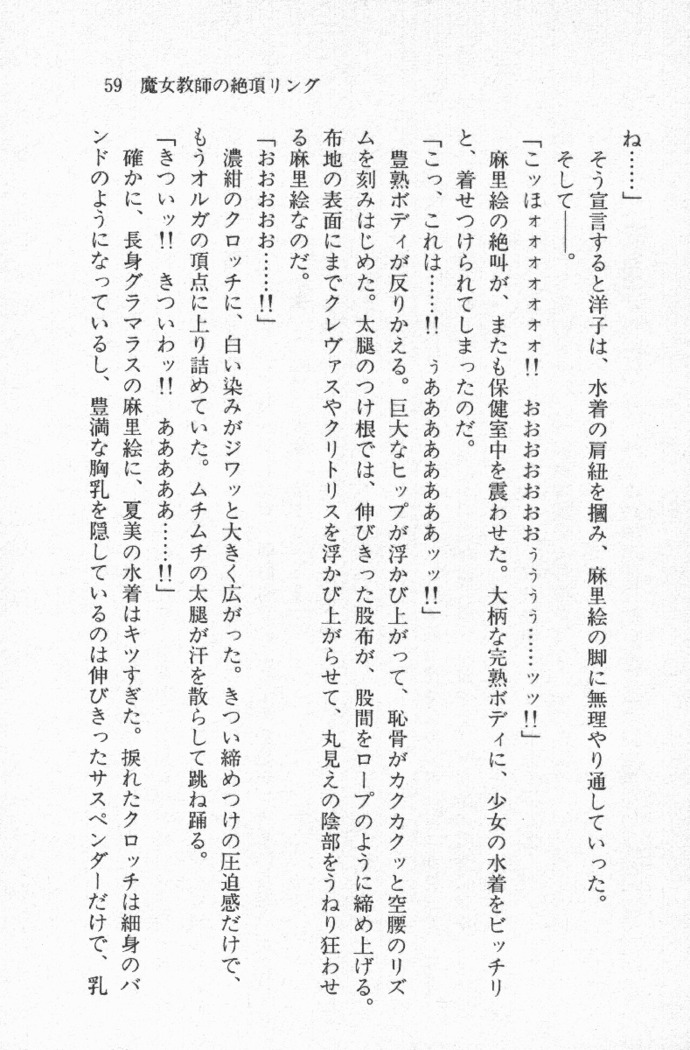 59　魔女教師の絶頂リング
ね……」
そう宣言すると洋子は、水着の肩紐を摑み、麻里絵の脚に無理やり通していった。
そして――。
「こッほォォォォォォォ!!　おおおおおおおぅぅぅぅ……ッッ!!」
麻里絵の絶叫が、またも保健室中を震わせた。大柄な完熟ボディに、少女の水着をビッチリ
と、着せつけられてしまったのだ。
「こっ、これは……!!　ぅああああああああッッ!!」
豊熟ボディが反りかえる。巨大なヒップが浮かび上がって、恥骨がカクカクッと空腰のリズ
ムを刻みはじめた。太腿のつけ根では、伸びきった股布が、股間をロープのように締め上げる。
布地の表面にまでクレヴァスやクリトリスを浮かび上がらせて、丸見えの陰部をうねり狂わせ
る麻里絵なのだ。
「おおおおお……!!」
濃紺のクロッチに、白い染みがジワッと大きく広がった。きつい締めつけの圧迫感だけで、
もうオルガの頂点に上り詰めていた。ムチムチの太腿が汗を散らして跳ね踊る。
「きついッ!!　きついわッ!!　あああああ……!!」
確かに、長身グラマラスの麻里絵に、夏美の水着はキツすぎた。捩れたクロッチは細身のバ
ンドのようになっているし、豊満な胸乳を隠しているのは伸びきったサスペンダーだけで、乳